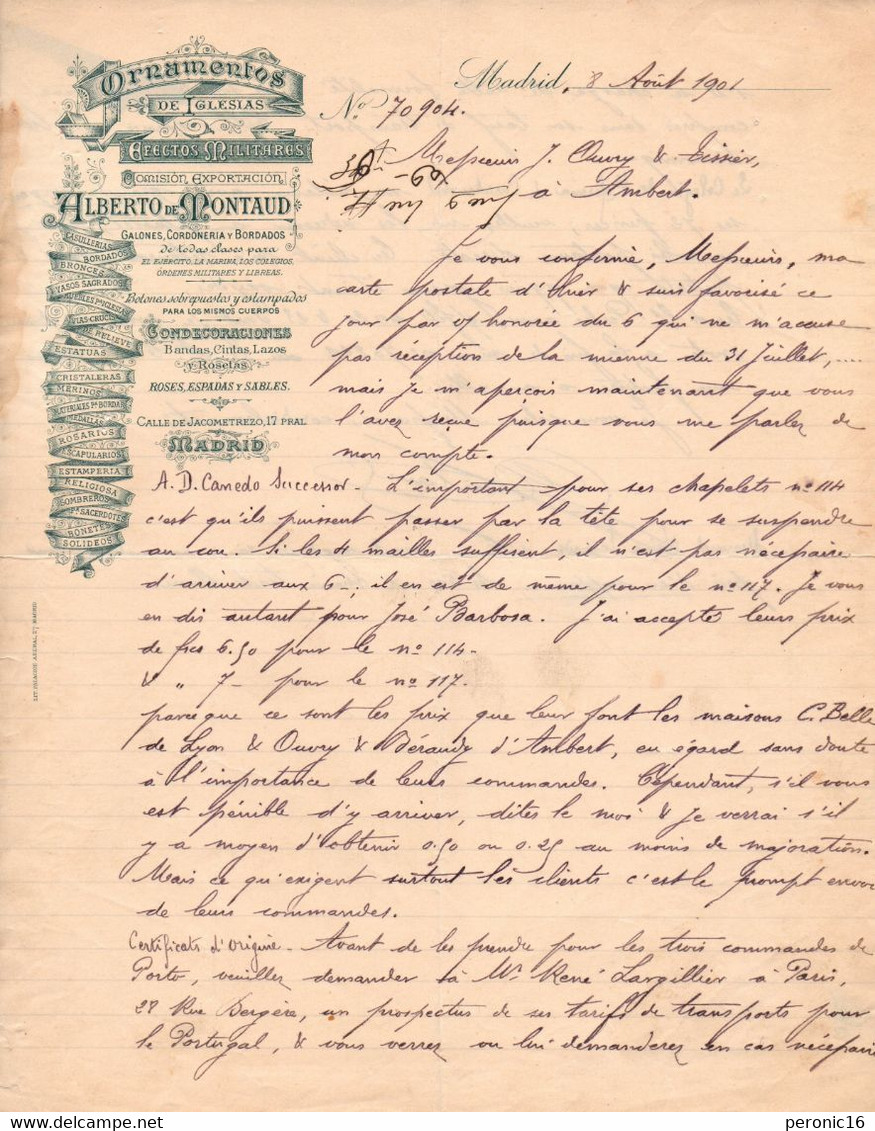 Ornamentos
DE IGLESIAS
EFECTOS MILITARES
COMISIÓN, EXPORTACIÓN
ALBERTO DE MONTAUD
GALONES, CORDONERIA Y BORDADOS
de todas clases para
EL EJÉRCITO, LA MARINA, LOS COLEGIOS,
ÓRDENES MILITARES Y LIBREAS.
Botones sobrepuestos y estampados
PARA LOS MISMOS CUERPOS
CONDECORACIONES
Bandas, Cintas, Lazos
y Rosetas
ROSES, ESPADAS Y SABLES.
CALLE DE JACOMETREZO, 17 PRAL
MADRID
CASULLERIAS
BORDADOS
BRONCES
VASOS SAGRADOS
MUEBLES PA IGLESIA
VIAS-CRUCIS
DE RELIEVE
ESTATUAS
CRISTALERAS
MERINOS
MATERIALES PA BORDAR
MEDALLAS
ROSARIOS
ESCAPULARIOS
ESTAMPERIA
RELIGIOSA
SOMBREROS
PA SACERDOTES
BONETES
SOLIDEOS
LIT. PALACIOS ARENAL, 27 MADRID
Madrid, 8 Août 1901
No 70904.
Messieurs J. Ouvry & Tissier,
à Ambert.
Je vous confirme, Messieurs, ma
carte postale d'hier & suis favorisé ce
jour par v/ honorée du 6 qui ne m'accuse
pas réception de la mienne du 31 Juillet, ....
mais je m'aperçois maintenant que vous
l'avez reçue puisque vous me parlez de
mon compte.
A. D. Canedo Successor - L'important pour ses chapelets no 114
c'est qu'ils puissent passer par la tête pour se suspendre
au cou. Si les 4 mailles suffisent, il n'est pas nécessaire
d'arriver aux 6 -; il en est de même pour le no 117. Je vous
en dis autant pour José Barbosa. J'ai accepté leurs prix
de frcs 6.50 pour le no 114 -
& " 7 - pour le no 117.
parceque ce sont les prix que leur font les maisons C. Belle
de Lyon & Ouvry & Béraudy d'Ambert, eu égard sans doute
à l'importance de leurs commandes. Cependant, s'il vous
est pénible d'y arriver, dites le moi & je verrai s'il
y a moyen d'obtenir 0.50 ou 0.25 au moins de majoration.
Mais ce qu'exigent surtout les clients c'est le prompt envoi
de leurs commandes.
Certificats d'Origine - Avant de les prendre pour les trois commandes de
Porto, veuillez demander à Mr René Largillier à Paris,
28 Rue Bergère, un prospectus de ses tarifs de transports pour
le Portugal, & vous verrez ou lui demanderez en cas nécessaire
peronic16